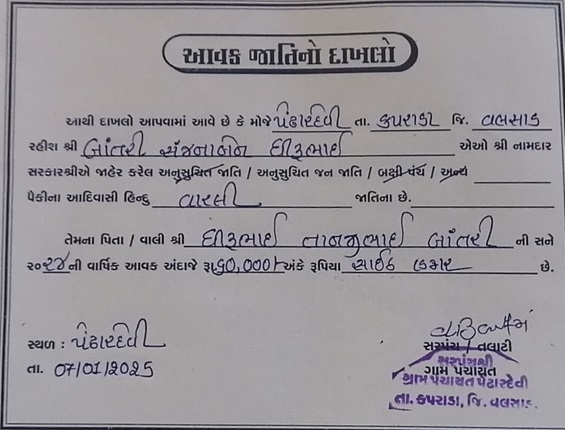 આવક જાતિનો દાખલો
આથી દાખલો આપવામાં આવે છે કે મોજે પેંઢારદેવી તા. કપરાડા જિ. વલસાડ
રહીશ શ્રી બાંતરી સંજનાબેન ધીરુભાઈ એઓ શ્રી નામદાર
સરકારશ્રીએ જાહેર કરેલ અનુસુચિત જાતિ / અનુસુચિત જન જાતિ / બક્ષી પંચ / અન્ય
પૈકીના આદિવાસી હિન્દુ વારલી જાતિના છે.
તેમના પિતા / વાલી શ્રી ધીરુભાઈ તાનજીભાઈ બાંતરી ની સને
૨૦૨૪ ની વાર્ષિક આવક અંદાજે રૂા. ૬૦,૦૦૦/- અંકે રૂપિયા સાઈઠ હજાર છે.
સ્થળ : પેંઢારદેવી
તા. 07/01/2025
સરપંચ / તલાટી
સરપંચશ્રી
ગ્રામ પંચાયત
ગ્રામ પંચાયત પેંઢારદેવી
તા. કપરાડા, જિ. વલસાડ.